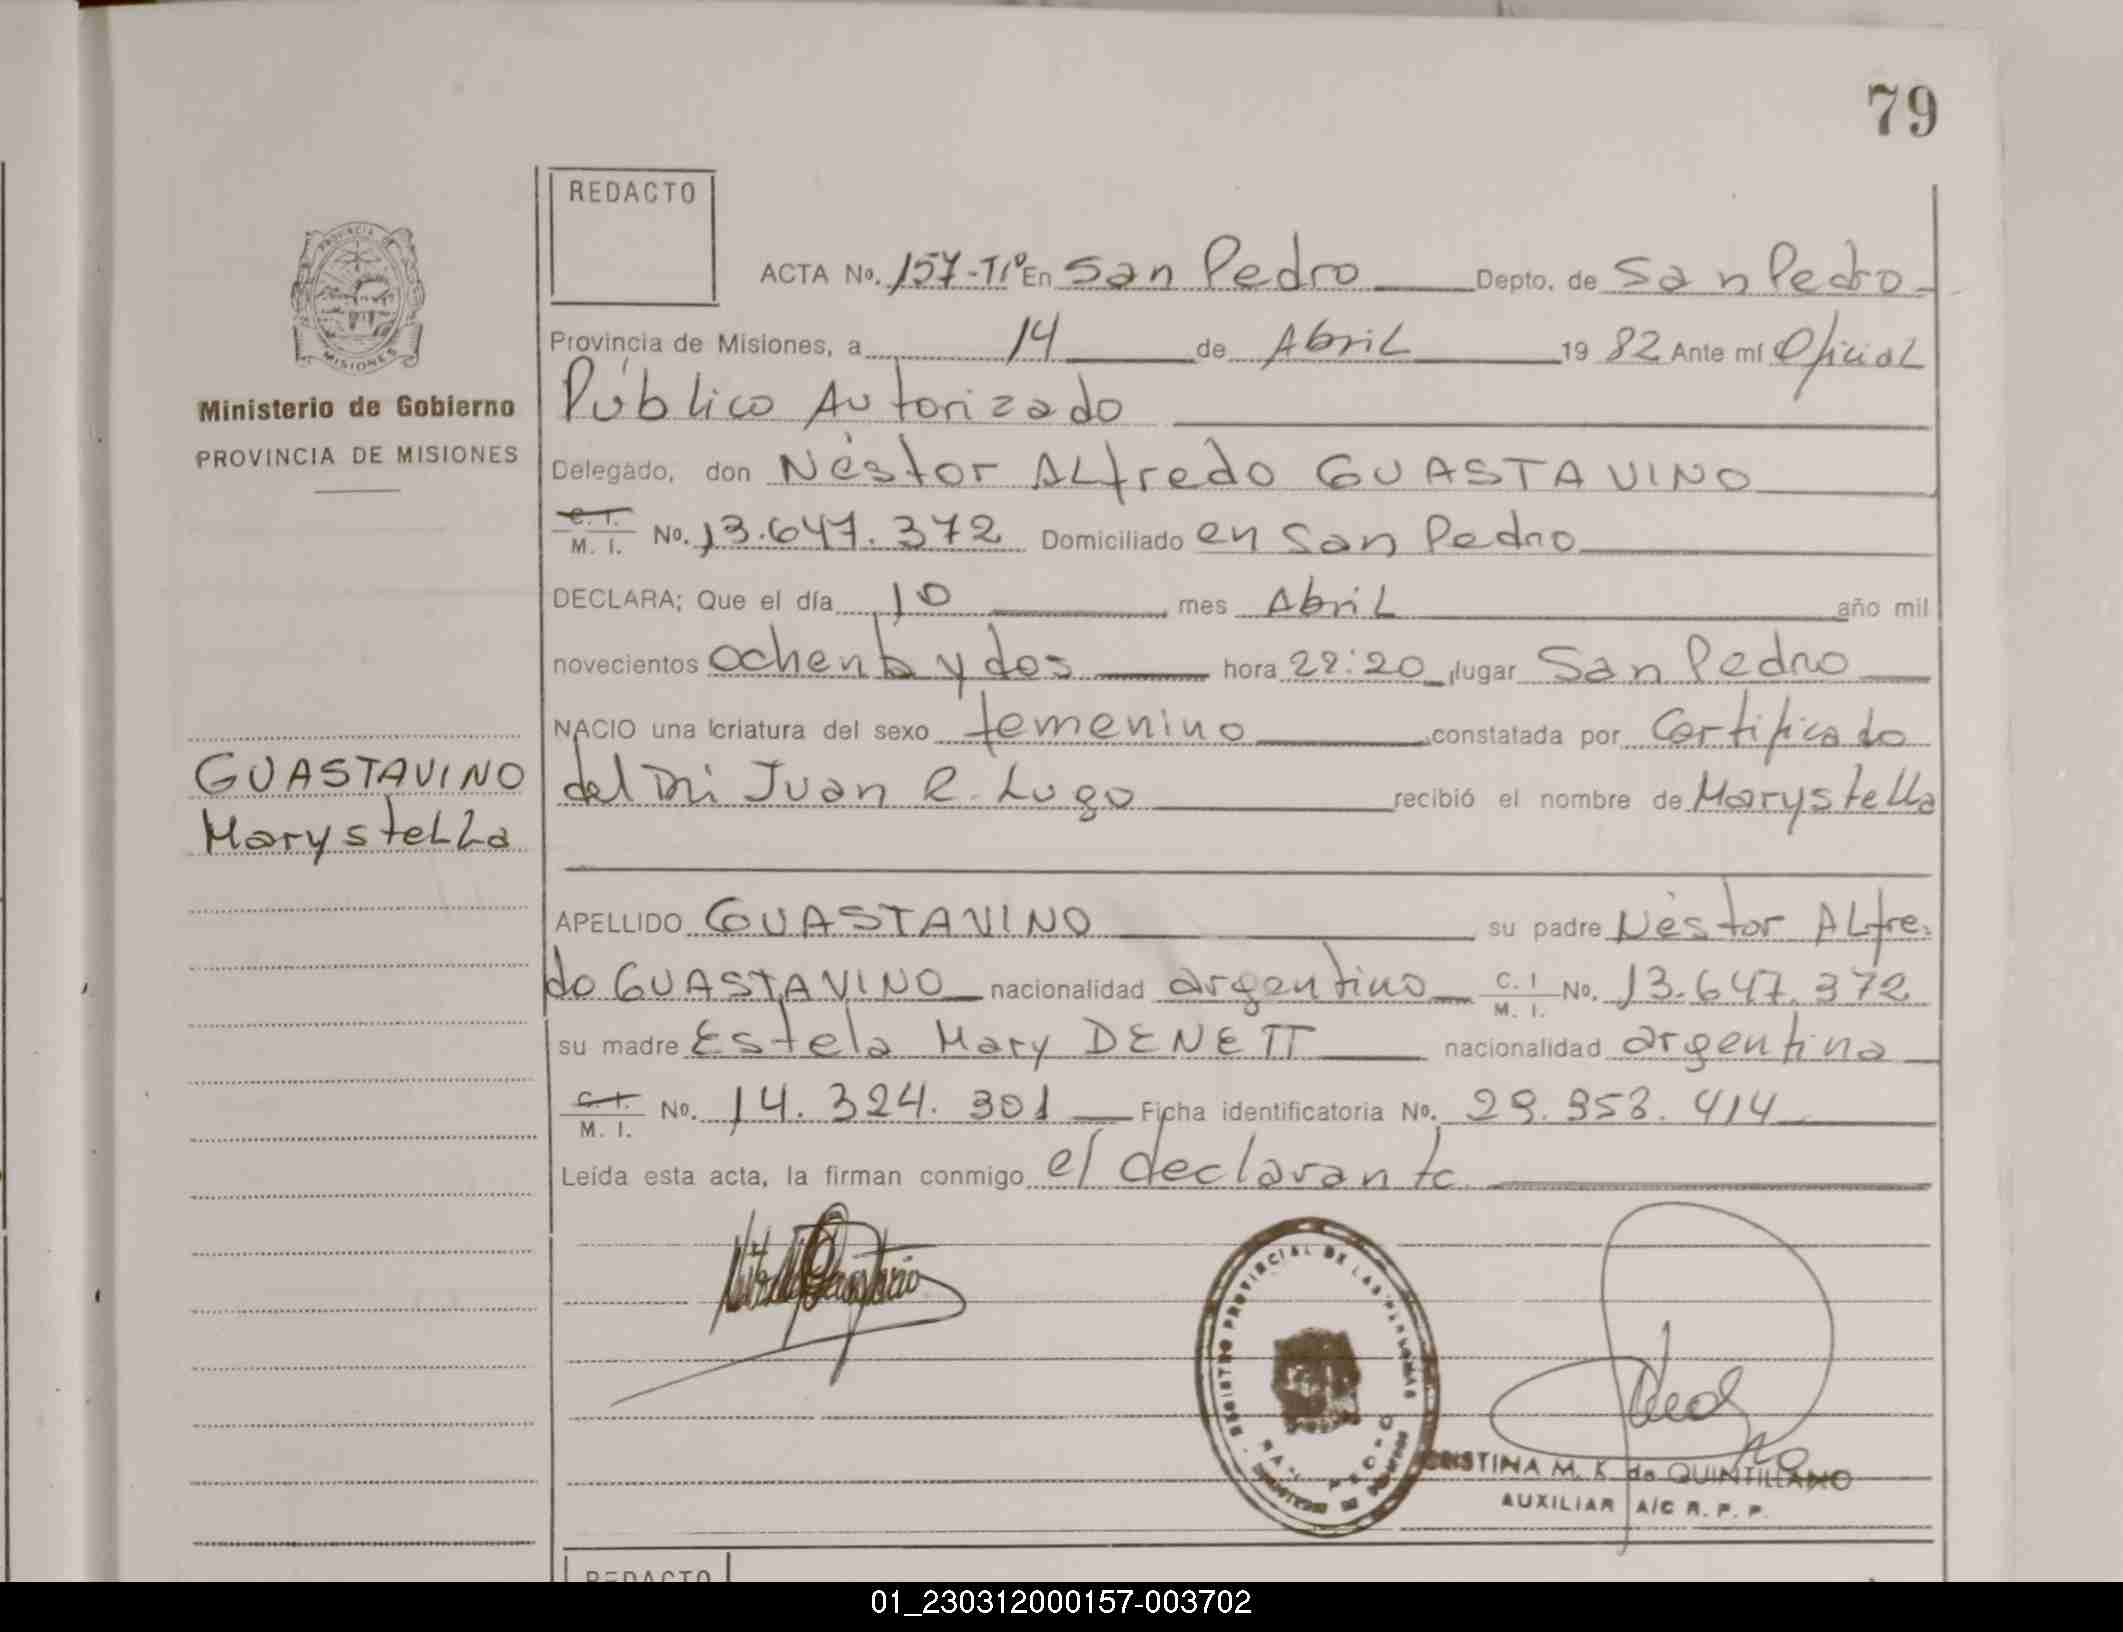 79
REDACTO
ACTA No. 157-Tº En San Pedro Depto. de San Pedro
PROVINCIA DE
MISIONES
Provincia de Misiones, a 14 de Abril 1982 Ante mí Oficial
Ministerio de Gobierno
Público Autorizado
PROVINCIA DE MISIONES
Delegado, don Néstor Alfredo GUASTAVINO
C. I.
M. I. No. 13.647.372 Domiciliado en San Pedro
DECLARA; Que el día 10 mes Abril año mil
novecientos ochenta y dos hora 22:20 lugar San Pedro
NACIO una criatura del sexo femenino constatada por Certificado
GUASTAVINO
Marystella
del Dr: Juan R. Lugo recibió el nombre de Marystella
APELLIDO GUASTAVINO su padre Néstor Alfre-
do GUASTAVINO nacionalidad argentino C. I
M. I. No. 13.647.372
su madre Estela Mary DENETT nacionalidad argentina
C. I.
M. I. No. 14.324.301 Ficha identificatoria No. 29.953.414
Leída esta acta, la firman conmigo el declarante
REGISTRO PROVINCIAL DE LAS PERSONAS
SAN PEDRO
CRISTINA M. K. de QUINTILLANO
AUXILIAR A/C R. P. P.
REDACTO
01_230312000157-003702